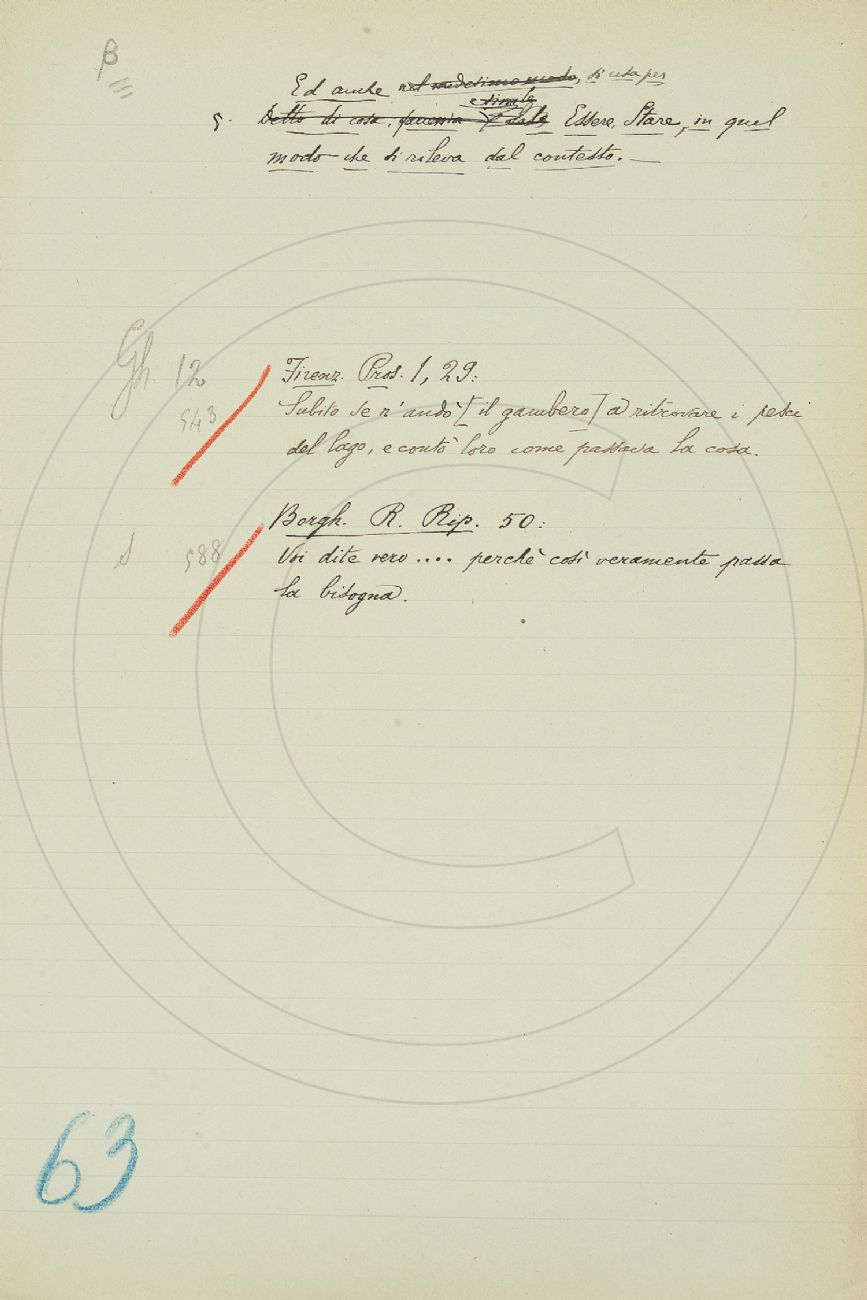 β
Ed anche nel medesimo modo, si usa per
e simile
§. Detto di cosa, Essere, Stare, in quel
modo che si rileva dal contesto. —
Gh. 12 Firenz. Pros. 1, 29:
543 Subito se n'andò [il gambero] a ritrovare i pesci
del lago, e contò loro come passava la cosa.
Borgh. R. Rip. 50:
S 588 Voi dite vero .... perchè così veramente passa
la bisogna.
63